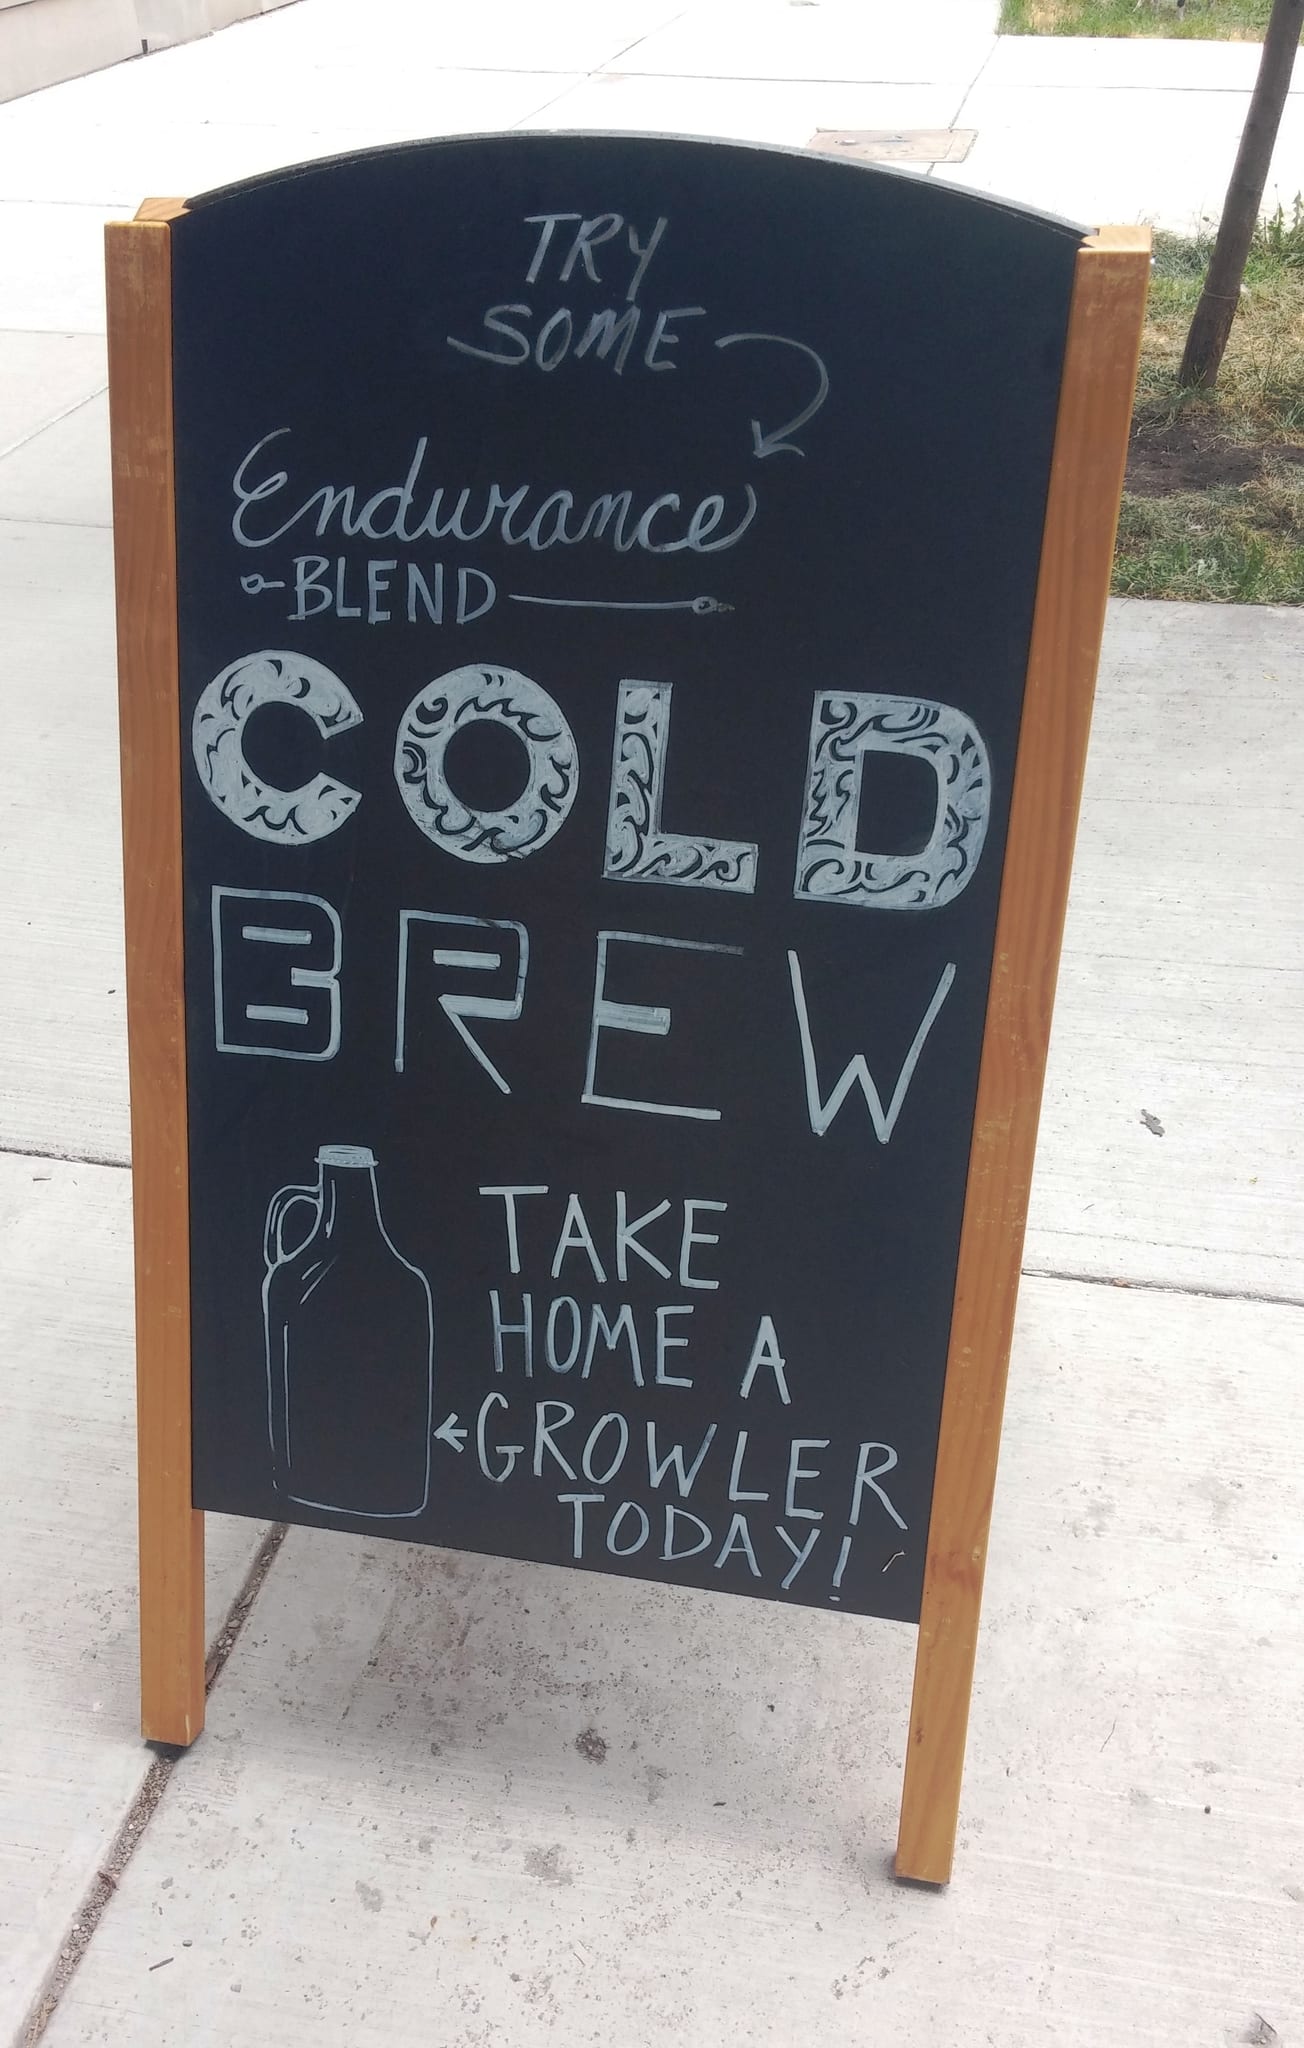 TRY
SOME
Endurance
BLEND
COLD
BREW
TAKE
HOME A
GROWLER
TODAY!